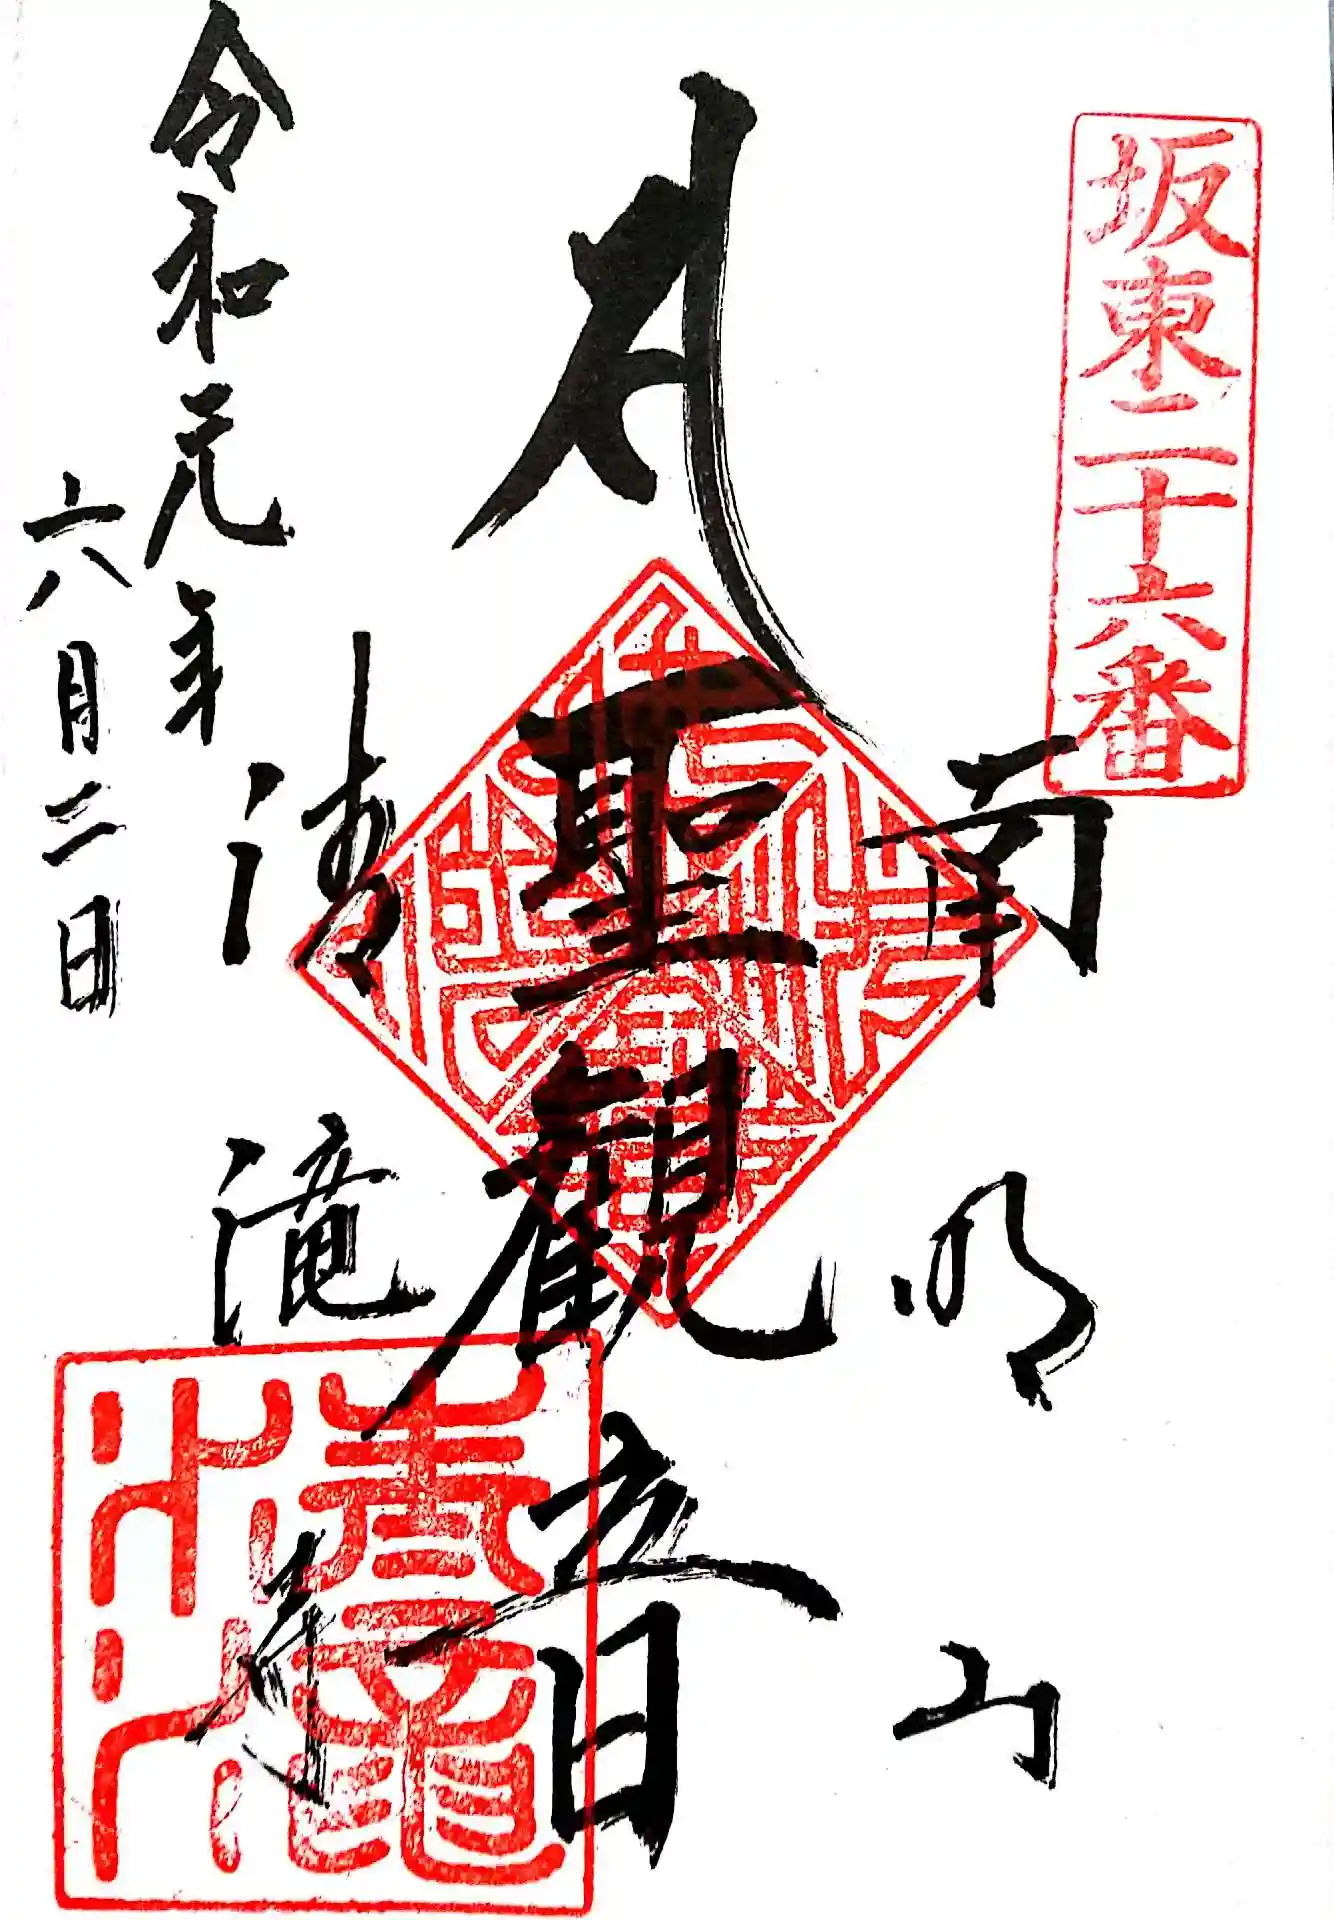 坂東二十六番
南明山
聖観音
清滝寺
令和元年
六月二日
清滝